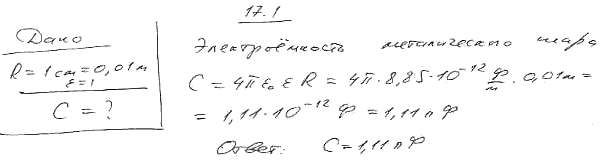 17.1
Дано
R = 1 cm = 0,01 м
ε = 1
C = ?
Электроёмкость металического шара
C = 4πε₀εR = 4π · 8,85 · 10⁻¹² ф/м · 0,01м =
= 1,11 · 10⁻¹² ф = 1,11 п ф
Ответ: C = 1,11 п ф